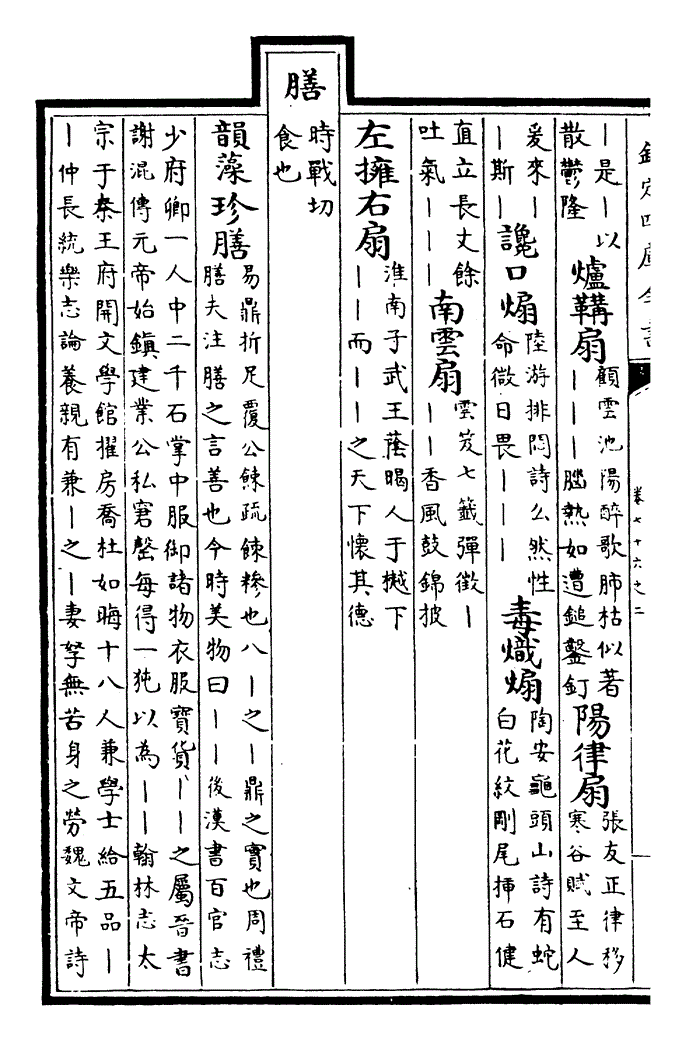 欽定四庫全書
卷七十六之二
｜是｜以
散鬱隆
爐鞲扇
顧雲池陽醉歌肺枯似著
｜｜｜腦熱如遭鎚鑿釘
陽律扇
張友正律移
寒谷賦至人
爰來｜
｜斯｜
讒口煽
陸游排悶詩么然性
命微日畏｜｜｜
毒熾煽
陶安龜頭山詩有蛇
白花紋剛尾揷石健
直立長丈餘
吐氣｜｜｜
南雲扇
雲笈七籤彈徵｜
｜｜香風鼓錦披
左擁右扇
淮南子武王蔭暍人于樾下
｜｜而｜｜之天下懷其德
膳
時戰切
食也
韻藻珍膳
易鼎折足覆公餗疏餗糝也八｜之｜鼎之實也周禮
膳夫注膳之言善也今時美物曰｜｜後漢書百官志
少府卿一人中二千石掌中服御諸物衣服寶貨｜｜之屬晉書
謝混傳元帝始鎮建業公私窘罄每得一㹠以為｜｜翰林志太
宗于秦王府開文學館擢房喬杜如晦十八人兼學士給五品｜
｜仲長統樂志論養親有兼｜之｜妻孥無苦身之勞魏文帝詩